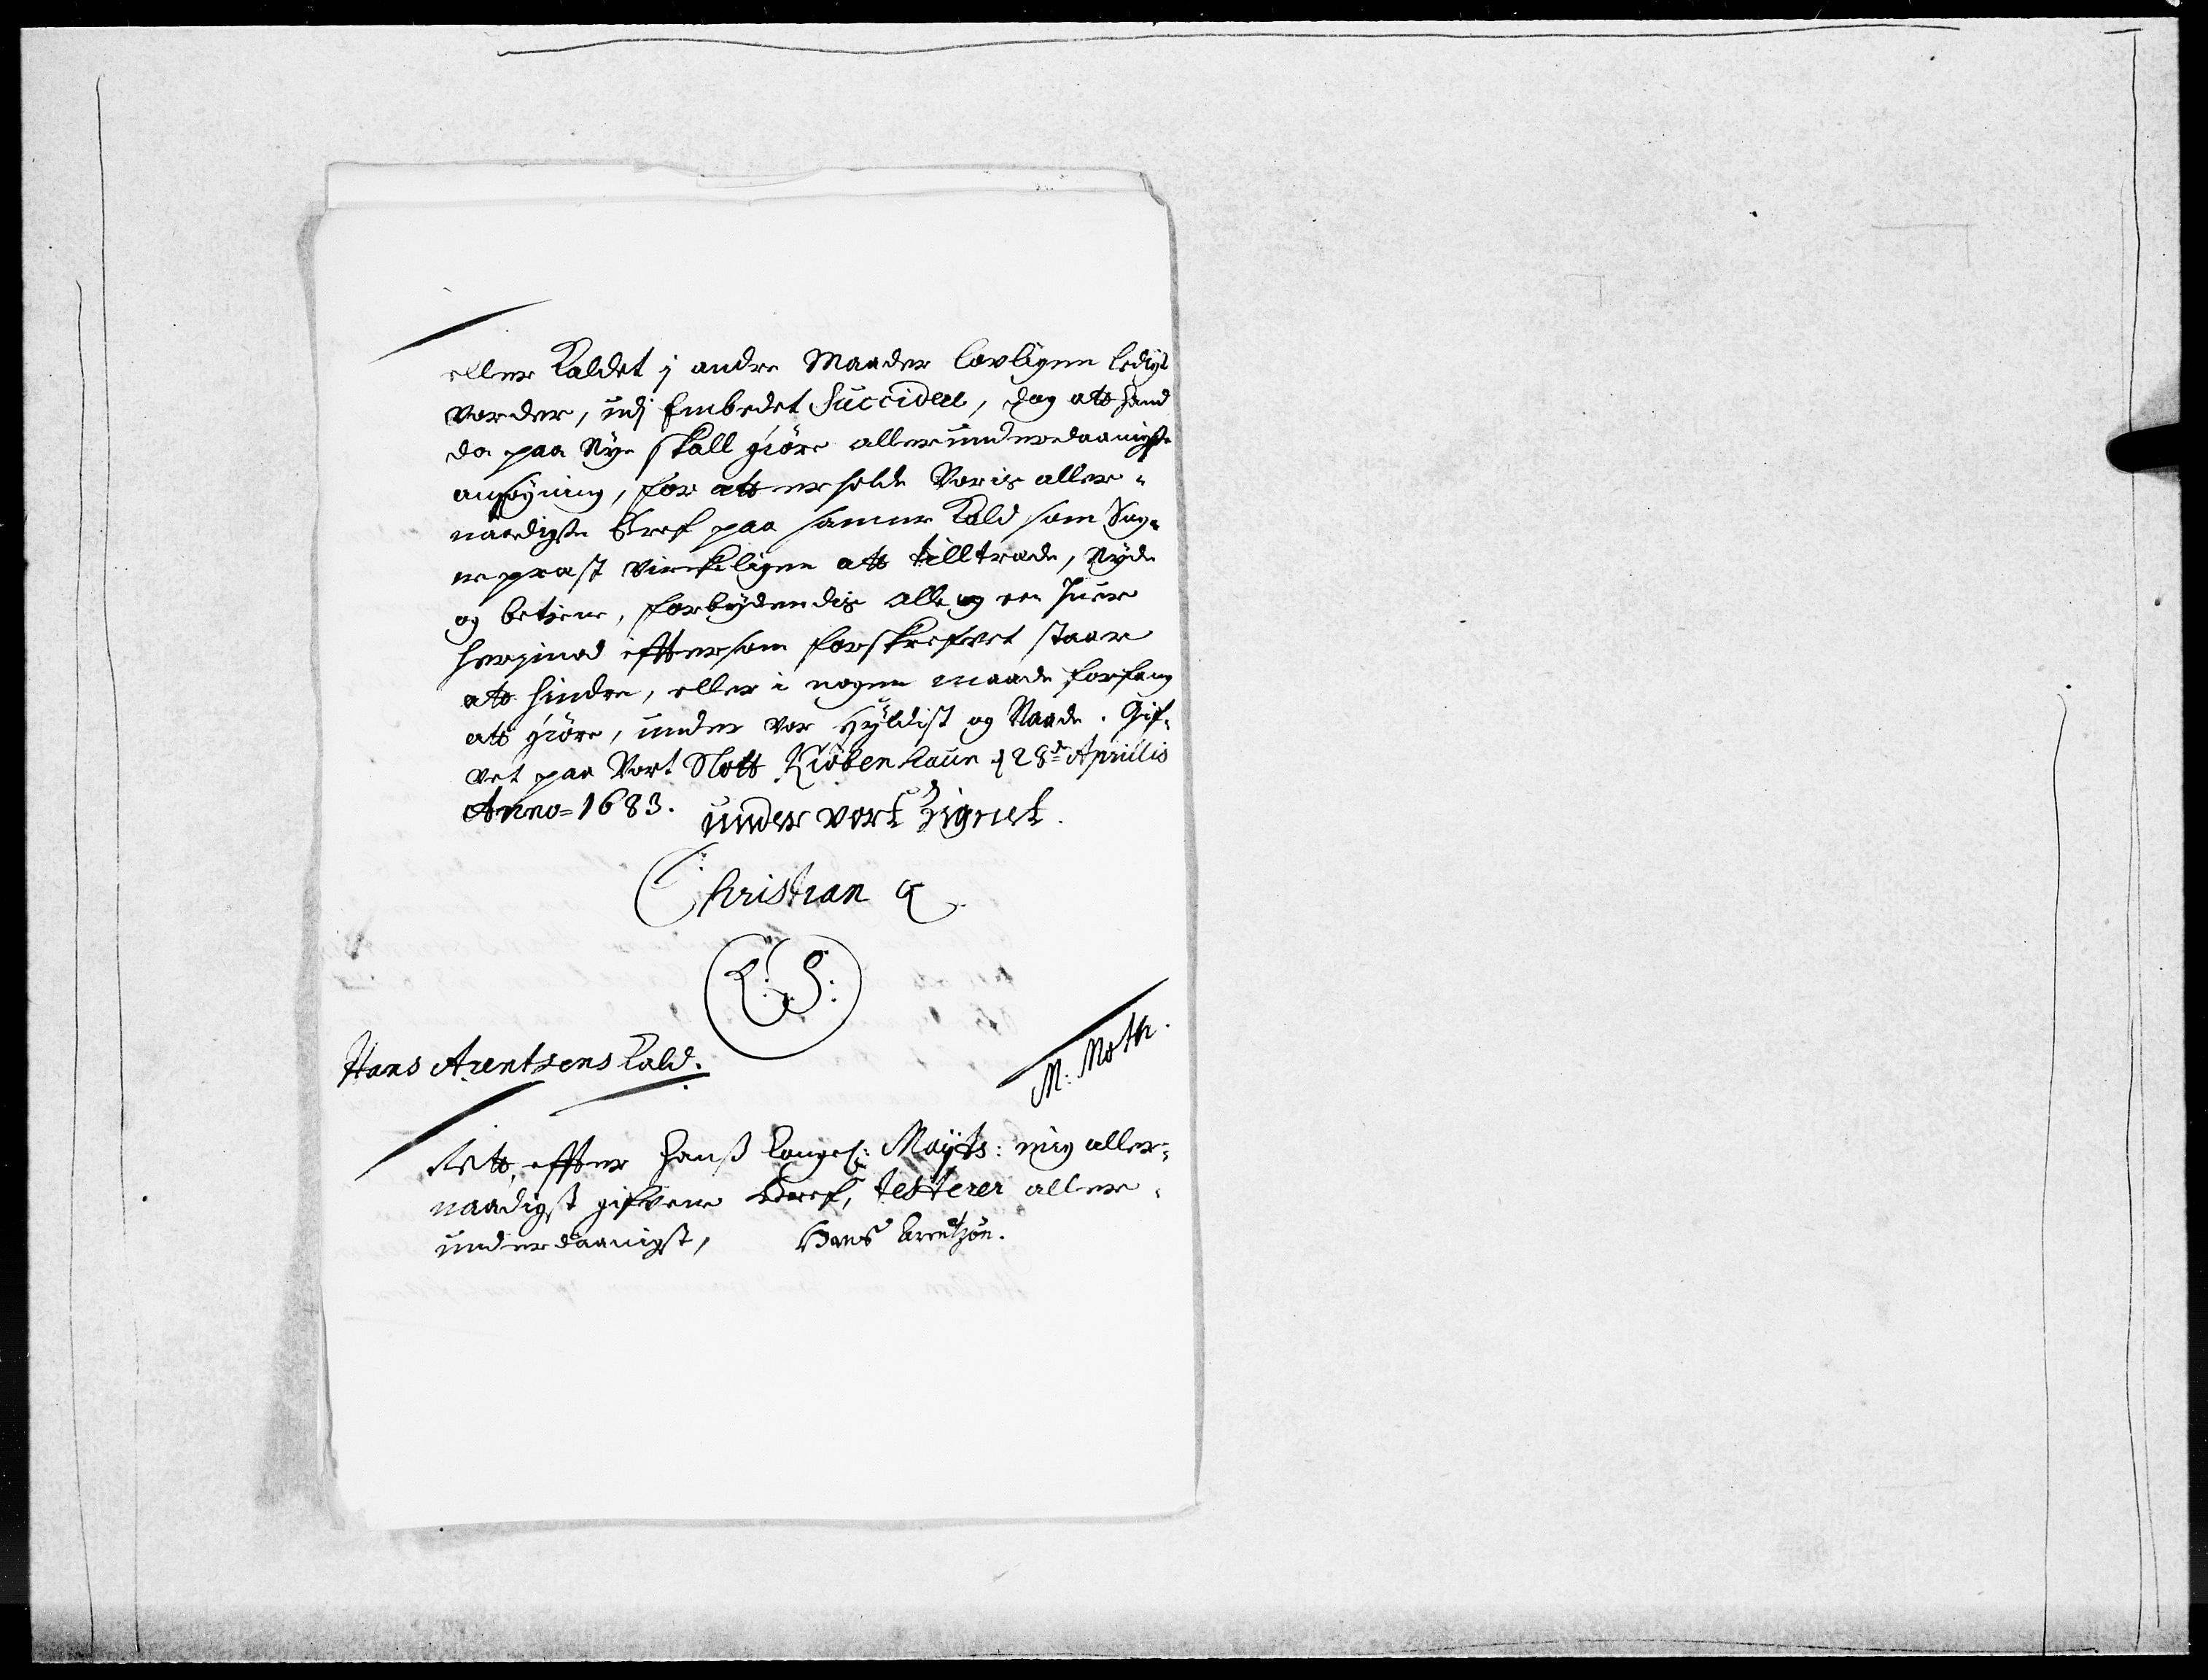 eller Kaldet j andre Maader lovligen ledigt
vorder, udj Embedet Succidere, dog att hand
da paa Nye skall giöre allerunderdaanigste
ansögning, for att erholde Voris aller-
naadigste Bref paa samme Kald som Sog-
neprest virkeligen att tilltræde, Nyde
og betiene, forbydendis alle og en huer
herjmod effttersom forskrefvet staar
att hindre, eller i nogen maade forfang
att giöre, under vor Hyldist og Naade. Gif-
vet paa Vort Slott Kiöbenhaun d 28de Aprilis
Anno=1683. under vort Zignet.
Christian
L: S:
M: Moth.
Hans Arentsens Kald.
Rett effter Hanß Kongel: Mayts: mig aller-
naadigst gifvene Bref, testerer aller-
underdaanigst, Hans Arentzön.